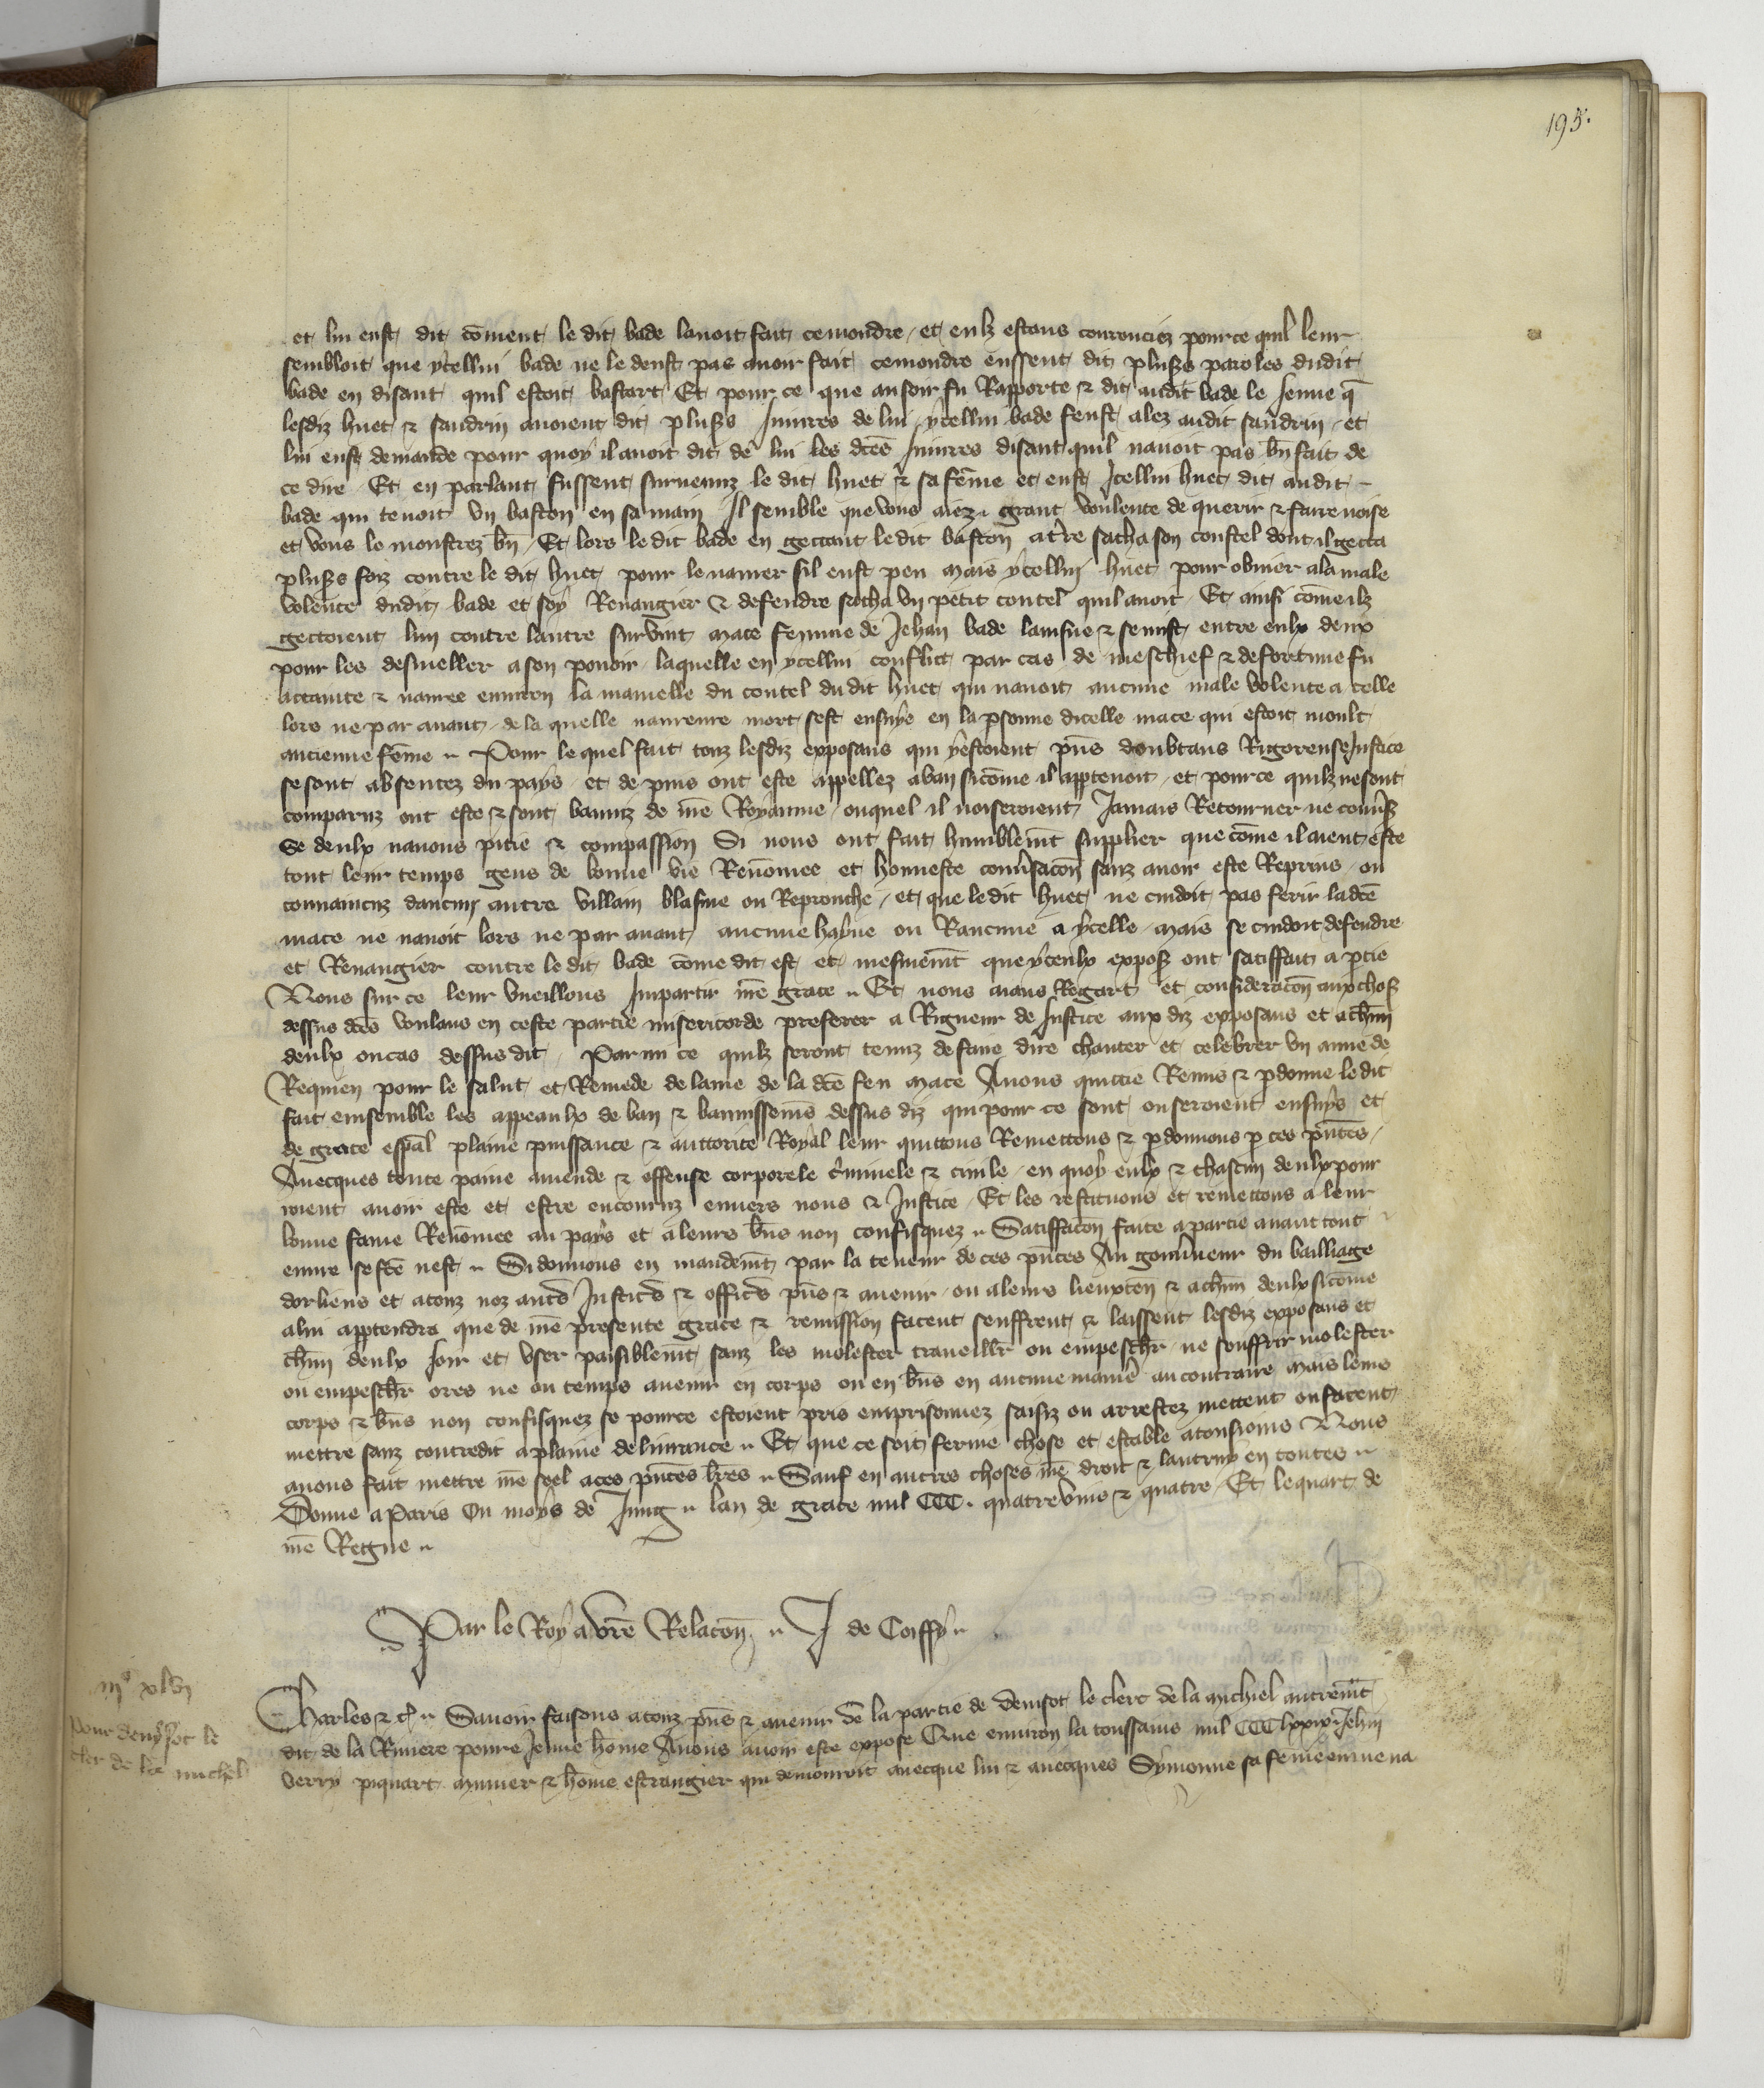 195.
et lui eust dit coment le dit bade lavoit fait cemondre / et eulz estans courrouciez pource quil leur
sembloit que ycellui bade ne le deust pas avoir fait cemondre eussent dit plusrs paroles dudit
bade en disant quil estoit bastart Et pour ce que ausoir fu Rapporte & dit audit bade le Jeune q̃
lesdiz huet & sandrin avoient dit plusrs Iniures de lui ycellui bade seust alez audit sandrin / et
lui eust demande pour quoy il avoit dit de lui les dc̃es Iniures disant quil navoit pas bñ fait de
ce dire Et en parlant fussent survenuz le dit huet & sa fẽme et eust Icellui huet dit audit
bade qui tenoit un baston en sa main Il semble que vous aiez grant voulente de querir & faire noise
et vous le monstrez bñ / Et lors le dit bade en gectant ledit baston at̃re sacha son coustel dont il gecta
plusrs foiz contre le dit huet pour le navrer sil eust peu mais ycellui huet pour obvier ala male
volente dudit bade et soy Revangier & defendre sacha un petit coutel quil avoit Et ainsi cõme ilz
gectoient lun contre lautre survint mace femme de Jehan bade lainsne & se mist entre eulx deux
pour les desmeller a son povoir laquelle en ycellui conflict par cas de meschief & de fortune fu
actainte & navree environ la mamelle du coutel du dit huet qui navoit aucune male volente a celle
lors ne par avant / de la quelle navreure mort sest ensuye en la psonne dicelle mace qui estoit moult
ancienne fẽme Pour lequel fait touz lesdiz exposans qui y estoient p̃ns doubtans Rigoreuse Justice
se sont absentez du pays et depuis ont este appellez a ban sicõme il apptenoit / et pource quilz ne sont
comparuz ont este & sont banniz de nr̃e Royaume / ouquel il noseroient Jamais Retourner ne convs̃
Se deulx navons pitie & compassion Si nous ont fait humblemt̃ supplier que cõme il aient este
tout leur temps gens de bonne vie Renõmee et honneste convs̃acõn sanz avoir este Reprins / ou
convaincuz daucun autre villain blasme ou Reprouche / et que le dit huet ne cuidoit pas ferir la dc̃e
mace ne navoit lors ne par avant aucune hayne ou Rancune a ycelle / mais se cuidoit defendre
et Revangier contre le dit bade cõme dit est et mesmemt̃ que yceulx expos̃ ont satiffait a ptie
Nous sur ce leur vueillons Impartir nr̃e grace Et nous aians Regart et consideracõn aux chos̃
dessus dc̃es voulans en ceste partie misericorde preferer a Rigueur de Justice aux diz exposans et achũn
deulx oucas dessus dit / Par mi ce quilz seront tenuz de faire dire chanter et celebrer un anne de
Requien pour le salut et Remede de lame de la dc̃e feu mace Avons quictie Remis & pdonne le dit
fait ensemble les appeaulx de ban & bannissems̃ dessus diz qui pour ce sont ou seroient ensuys et
de grace esp̃al plaine puissance & auttorite Royal leur quittons Remettons & pdonnons p ces p̃ntes /
Avecques toute paine amende & offense corporele c̃minele & civile / en quoy eulx & chascun deulx pour
roient avoir este et estre encouruz envers nous & Justice / Et les restituons et remettons a leur
bonne fame Renõmee au pays et a leurs bñs non confisquez Satiffacõn faite a partie avant tout
euvre se fc̃e nest Si donnons en mandemt̃ par la teneur de ces p̃ntes Au gouv̾neur du bailliage
dorliens et a touz noz autr̃s Justicrs̃ & officrs̃ p̃ns & avenir / ou a leurs lieuxten̄ & achũn deulx sicõme
a lui apptendra que de nr̃e presente grace & remission facent seuffrent & laissent lesdiz exposans et
chũn deulx Joir et user paisiblemt̃ sanz les molester traveillr̃ ou empeschr̃ ne souffrir molester
ou empeschr̃ ores ne ou temps avenir en corps ou en bñs en aucune maniẽ au contraire mais leurs
corps & bñs non confisquez se pource estoient pris emprisonnez saisiz ou arrestez mettent ou facent
mettre sanz contredit a plaine delivrance Et que ce soit ferme chose et estable a tousiours Nous
avons fait mettre nr̃e seel a ces p̃ntes lr̃es Sauf en autres choses nr̃e droit & lautruy en toutes
Donne a Paris Ou moys de Juing lan de grace mil CCC. quatre vins & quatre / Et le quart de
nr̃e Regne
Par le Roy a vr̃e Relacõn J de Coiffy
iiiᵒ xlvi
pour denysot le
cler de la michel
Charles & c̃ Savoir faisons a touz p̃ns & avenir de la partie de denisot le clerc de la michiel autremt̃
dit de la Riviere povre Jeune hõme Avons avoir este expose Que environ la toussains mil CCC lxxix Jehan
verry piquart munier & hõme estrangier qui demouroit avecque lui & avecques Symonne sa fẽme enmena